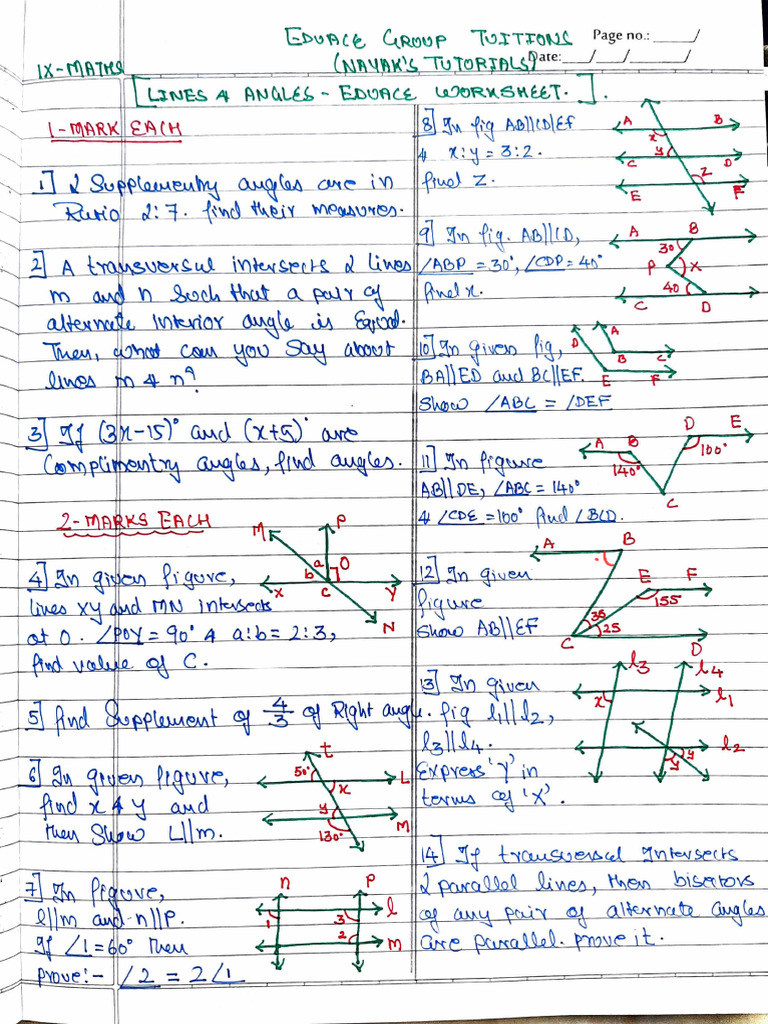 EDUACE GROUP TUITIONS
Page no.: ___/
IX-MATHS
(NAYAK'S TUTORIALS)
Date: __/__/__
[LINES & ANGLES - EDUACE WORKSHEET.].
1-MARK EACH
1] 2 Supplementry angles are in
Ratio 2:7. find their measures.
2] A transversal intersects 2 lines
m and n such that a pair of
alternate interior angle is Equal.
Then, what can you say about
lines m & n?
3] If (3x-15)° and (x+5)° are
Complimentry angles, find angles.
2-MARKS EACH
4] In given figure,
lines XY and MN intersects
at O. ∠POY = 90° & a:b = 2:3,
find value of C.
M
P
a
b
O
X
C
Y
N
5] find Supplement of 4/3 of Right angle.
6] In given figure,
find x & y and
then show L||m.
t
50°
L
x
y
M
130°
7] In figure,
l||m and n||p.
If ∠1 = 60° then
prove:- ∠2 = 2∠1
n
P
l
1
3
2
m
8] In fig AB||CD||EF
& x:y = 3:2.
find Z.
A
B
x
y
C
D
Z
E
F
9] In fig. AB||CD,
∠ABP = 30°, ∠CDP = 40°
find x.
A
B
30
P
x
40
C
D
10] In given fig,
BA||ED and BC||EF.
Show ∠ABC = ∠DEF
D
A
B
C
E
F
11] In figure
AB||DE, ∠ABC = 140°
& ∠CDE = 100° find ∠BCD.
A
B
140°
D
E
100°
C
12] In given
figure
Show AB||EF
A
B
E
F
155
35
25
C
D
13] In given
fig l1||l2,
l3||l4.
Express 'Y' in
terms of 'X'.
l3
l4
x
l1
l2
y
y
14] If transversal Intersects
2 parallel lines, then bisectors
of any pair of alternate angles
are parallel. prove it.